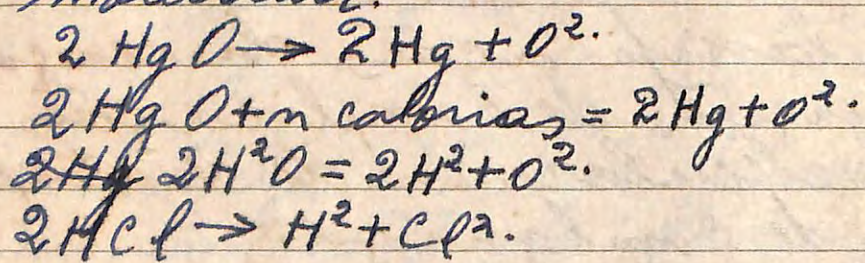 2 HgO → 2Hg + O².
2HgO + n calorias = 2Hg + O².
2Hg 2H²O = 2H² + O².
2HCl → H² + Cl².